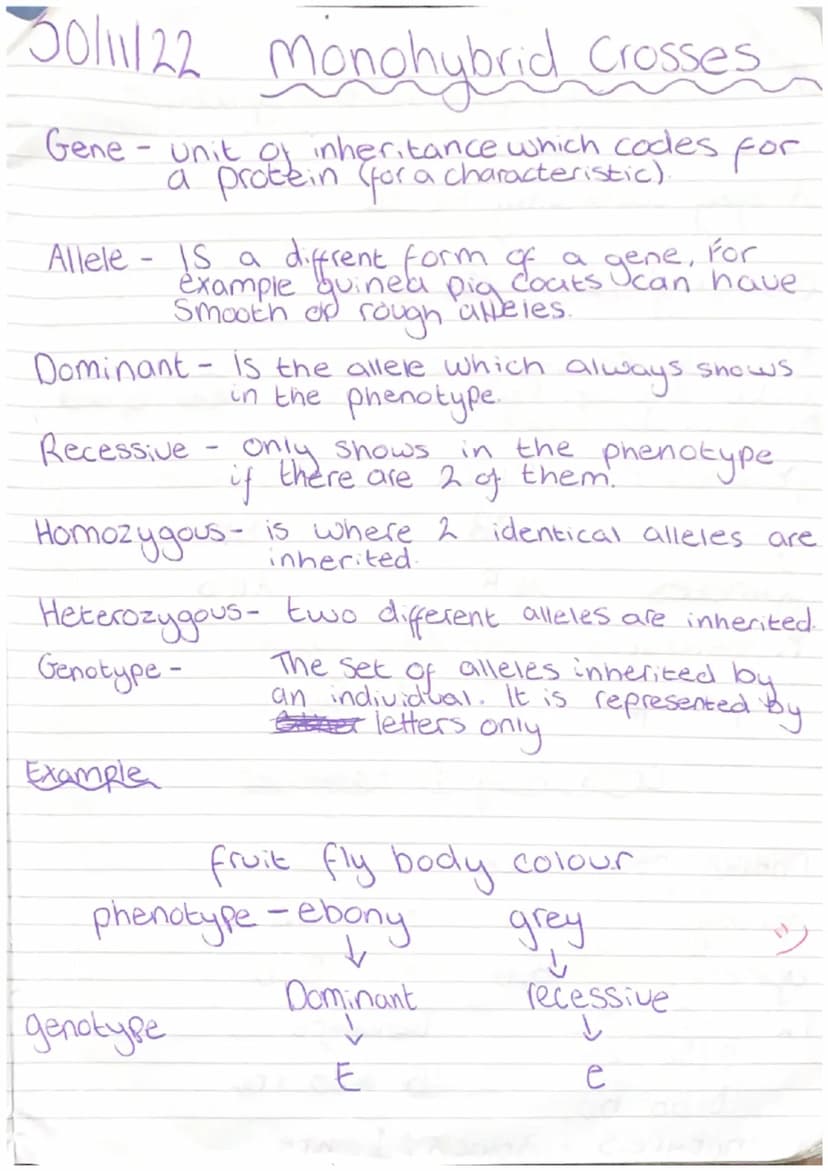 30/11/22 Monohybrid Crosses
Gene - unit of inheritance which codes for
a protein (for a characteristic).
Allele - Is a diffrent form of a gene, For
example guinea pig coats can have
smooth or rough alleles.
Dominant - is the allele which always shows
in the phenotype.
Recessive - only shows in the phenotype
if there are 2 of them.
Homozygous - is where 2 identical alleles are
inherited.
Heterozygous - two different alleles are inherited.
Genotype - The set of alleles inherited by
an individual. It is represented by
letters only
Example
fruit fly body colour
phenotype - ebony grey
↓ ↓
Dominant recessive
genotype ↓ ↓
E e